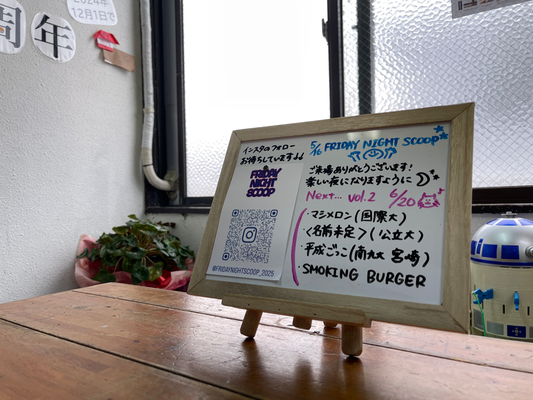 2024年
12月1日で
周年
インスタのフォロー
お待ちしています↓↓
FRIDAY
NIGHT
SCOOP
@FRIDAYNIGHTSCOOP_2025
5/16 FRIDAY NIGHT SCOOP
ご来場ありがとうございます!
楽しい夜になりますように
Next... vol.2 6/20
・マシメロン(国際大)
・<名前未定>(公立大)
・平成ごっこ(南九大 宮崎)
・SMOKING BURGER